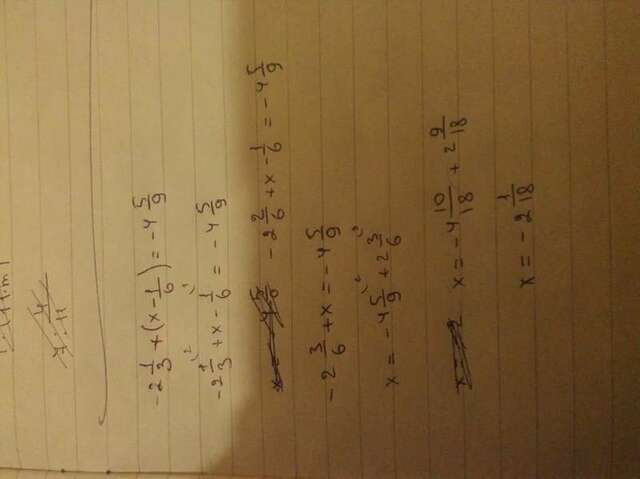 -2 1/3 + (x - 1/6) = -4 5/9
-2 1/3 + x - 1/6 = -4 5/9
-2 2/6 + x - 1/6 = -4 5/9
-2 3/6 + x = -4 5/9
x = -4 5/9 + 2 3/6
x = -4 10/18 + 2 9/18
x = -2 1/18